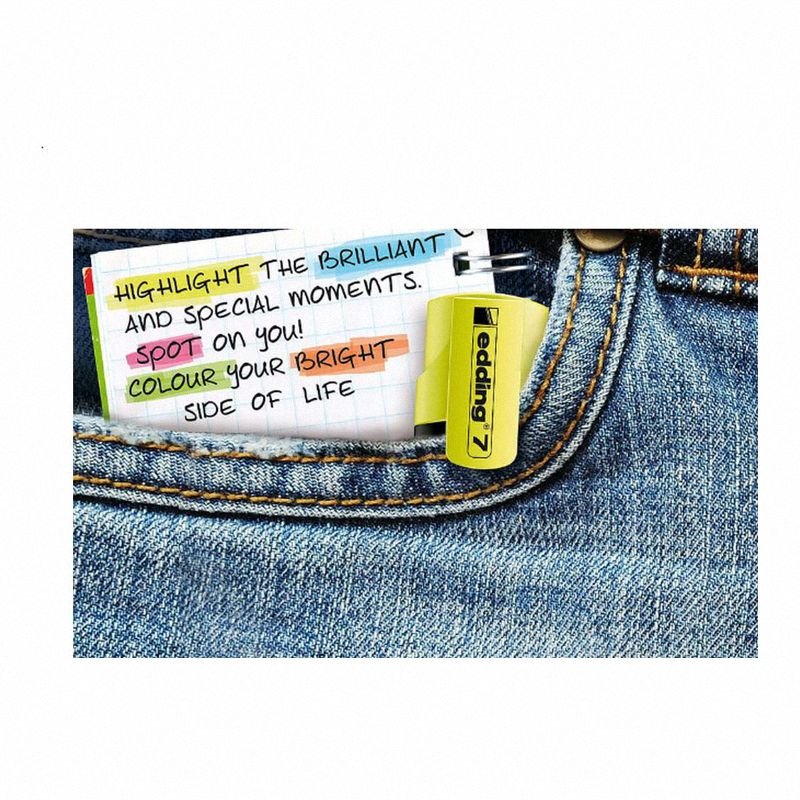 HIGHLIGHT THE BRILLIANT
AND SPECIAL MOMENTS.
SPOT ON YOU!
COLOUR YOUR BRIGHT
SIDE OF LIFE
edding® 7